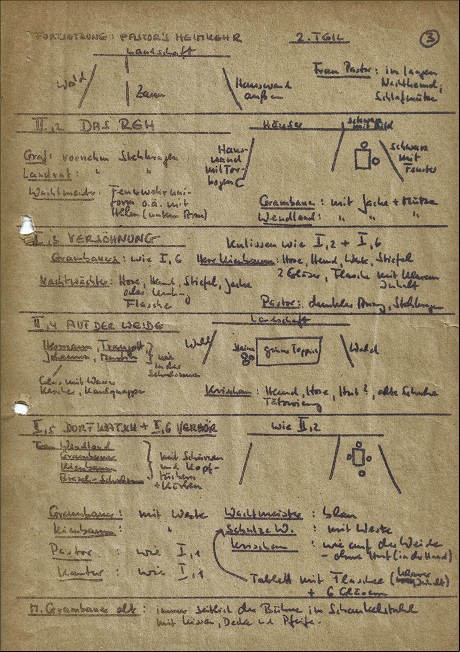 FORTSETZUNG: PASTOR'S HEIMKEHR 2. TEIL 3
Landschaft
Wald
Zaun
Hauswand
außen
Frau Pastor: im langen
Nachthemd,
Schlafmütze
II,2 DAS REH
Häuser
Graf: vornehm Stehkragen
Landrat: " "
Wachtmeister: Feuerwehruni-
form o.ä. mit
Helm (unterm Arm)
Haus-
wand
mit Tor-
bogen
schwarz
mit
Fenster
Grambauer: mit Jacke + Mütze
Wendland: " "
II,3 VERSÖHNUNG
Kulissen wie I,2 + I,6
Grambauer: wie I,6
Herr Kienbaum: Hose, Hemd, Weste, Stiefel
2 Gläser, Flasche mit klarem
Inhalt
Nachtwächter: Hose, Hemd, Stiefel, Jacke
Flasche
Pastor: dunkler Anzug, Stehkragen
II,4 AUF DER WEIDE
Landschaft
Hermann, Traugott
Johannes,
wie
in der
Wald
Steine
grüner Teppich
Wald
Krischan: Hemd, Hose, Hut?, alte Schuhe
Tätowierung
II,5 DORFWATUN + II,6 VERHÖR
wie II,2
Frau Wendland
Grambauer
Kienbaum
mit Schürzen
und Kopf-
tüchern
+ Körben
Grambauer: mit Weste
Wachtmeister: blau
Kienbaum: "
Schulze W.: mit Weste
Krischan: wie auf der Weide
- ohne Hut (in der Hand)
Pastor: wie I,1
Kantor: wie I,1
Tablett mit Flasche (klarer Inhalt)
+ 6 Gläsern
M. Grambauer alt: immer seitlich der Bühne im Schaukelstuhl
mit Kissen, Decke und Pfeife.